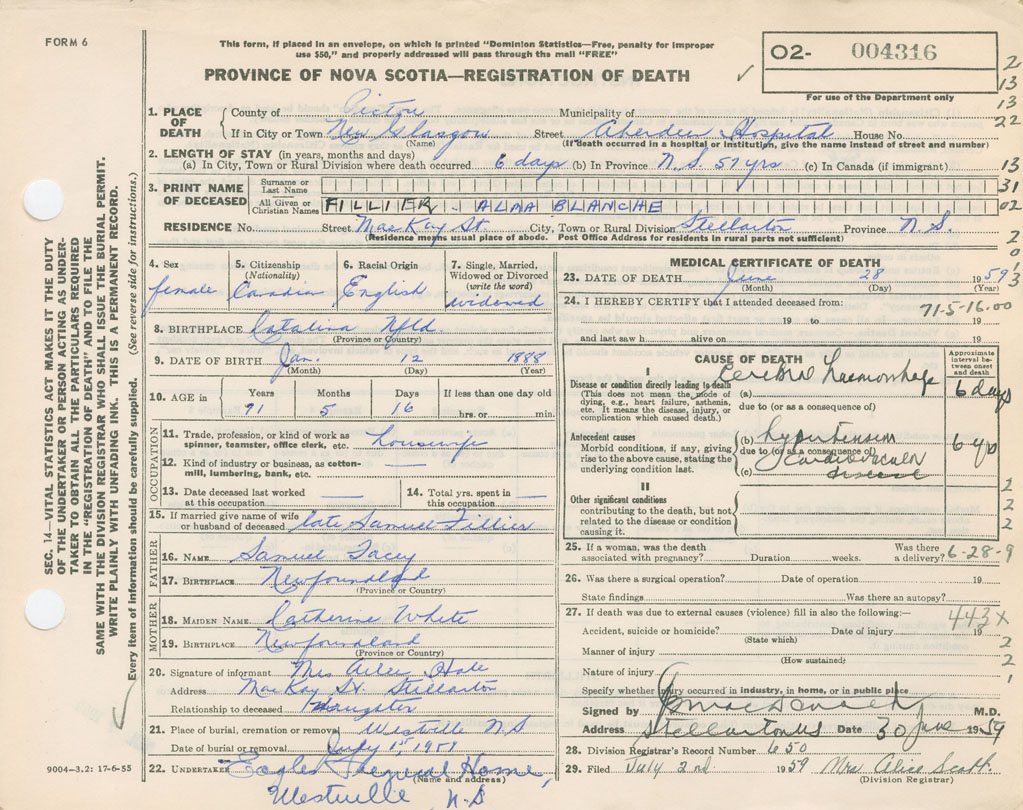 FORM 6
This form, if placed in an envelope, on which is printed "Dominion Statistics—Free, penalty for improper
use $50," and properly addressed will pass through the mail "FREE"
PROVINCE OF NOVA SCOTIA—REGISTRATION OF DEATH
O2- 004316
For use of the Department only
1. PLACE OF DEATH
County of Pictou Municipality of
If in City or Town New Glasgow Street Aberdeen Hospital House No.
(Name) (If death occurred in a hospital or institution, give the name instead of street and number)
2. LENGTH OF STAY (in years, months and days)
(a) In City, Town or Rural Division where death occurred 6 days (b) In Province N.S. 57 yrs (c) In Canada (if immigrant)
3. PRINT NAME OF DECEASED
Surname or Last Name
All Given or Christian Names FILLIER. ALMA BLANCHE
RESIDENCE No. Street MacKay St City, Town or Rural Division Stellarton Province N S.
(Residence means usual place of abode. Post Office Address for residents in rural parts not sufficient)
4. Sex
female
5. Citizenship
(Nationality)
6. Racial Origin
English
7. Single, Married, Widowed or Divorced
(write the word)
widowed
8. BIRTHPLACE Catalina Nfld.
(Province or Country)
9. DATE OF BIRTH Jan. 12 1888
(Month) (Day) (Year)
10. AGE in
Years Months Days If less than one day old
71 5 16 hrs. or min.
OCCUPATION
11. Trade, profession, or kind of work as
spinner, teamster, office clerk, etc. housewife
12. Kind of industry or business, as cotton-
mill, lumbering, bank, etc.
13. Date deceased last worked
at this occupation
14. Total yrs. spent in
this occupation
15. If married give name of wife
or husband of deceased late Samuel Fillier
FATHER
16. NAME Samuel Facey
17. BIRTHPLACE Newfoundland
(Province or Country)
MOTHER
18. MAIDEN NAME Catherine White
19. BIRTHPLACE Newfoundland
(Province or Country)
20. Signature of informant Mrs
Address MacKay St. Stellarton
Relationship to deceased Daughter
21. Place of burial, cremation or removal Westville N S
Date of burial or removal July 1st
22. UNDERTAKER Eagles Funeral Home,
(Name and address)
Westville N.S
9004-3.2: 17-6-55
MEDICAL CERTIFICATE OF DEATH
23. DATE OF DEATH June 28 1959
(Month) (Day) (Year)
24. I HEREBY CERTIFY that I attended deceased from:
71-5-16-00
19 to 19
and last saw h alive on 19
CAUSE OF DEATH
Approximate interval between onset and death
I
Disease or condition directly leading to death
(This does not mean the mode of
dying, e.g., heart failure, asthenia,
etc. It means the disease, injury, or
complication which caused death.)
(a) Cerebral haemorrhage 6 days
due to (or as a consequence of)
Antecedent causes
Morbid conditions, if any, giving
rise to above cause, stating the
underlying condition last.
(b) hypertension
due to (or as a consequence of)
cardiovascular
(c) disease
II
Other significant conditions
contributing to the death, but not
related to the disease or condition
causing it.
25. If a woman, was the death
associated with pregnancy? Duration weeks.
Was there
a delivery?
6-28-9
26. Was there a surgical operation? Date of operation 19
State findings Was there an autopsy?
27. If death was due to external causes (violence) fill in also the following:—
443x
Accident, suicide or homicide? Date of injury 19
(State which)
Manner of injury
(How sustained)
Nature of injury
Specify whether injury occurred in industry, in home, or in public place
Signed by M.D.
Address Stellarton NS Date 30 June 1959
28. Division Registrar's Record Number 650
29. Filed July 2nd 1959 Mrs Alice Scott.
(Division Registrar)
2
13
13
22
13
31
02
2
0
1
3
2
2
2
2
2
1
SEC. 14—VITAL STATISTICS ACT MAKES IT THE DUTY
OF THE UNDERTAKER OR PERSON ACTING AS UNDER-
TAKER TO OBTAIN ALL THE PARTICULARS REQUIRED
IN THE "REGISTRATION OF DEATH" AND TO FILE THE
SAME WITH THE DIVISION REGISTRAR WHO SHALL ISSUE THE BURIAL PERMIT.
WRITE PLAINLY WITH UNFADING INK. THIS IS A PERMANENT RECORD.
Every item of information should be carefully supplied. (See reverse side for instructions.)